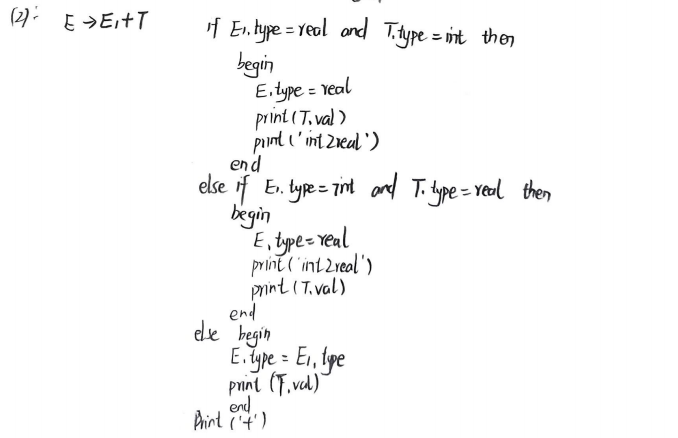 (2): E → E₁+T if E₁.type = real and T.type = int then
begin
E.type = real
print(T.val)
print('int2real')
end
else if E₁.type = int and T.type = real then
begin
E.type = real
print('int2real')
print(T.val)
end
else begin
E.type = E₁.type
print(T.val)
end
Print('+')